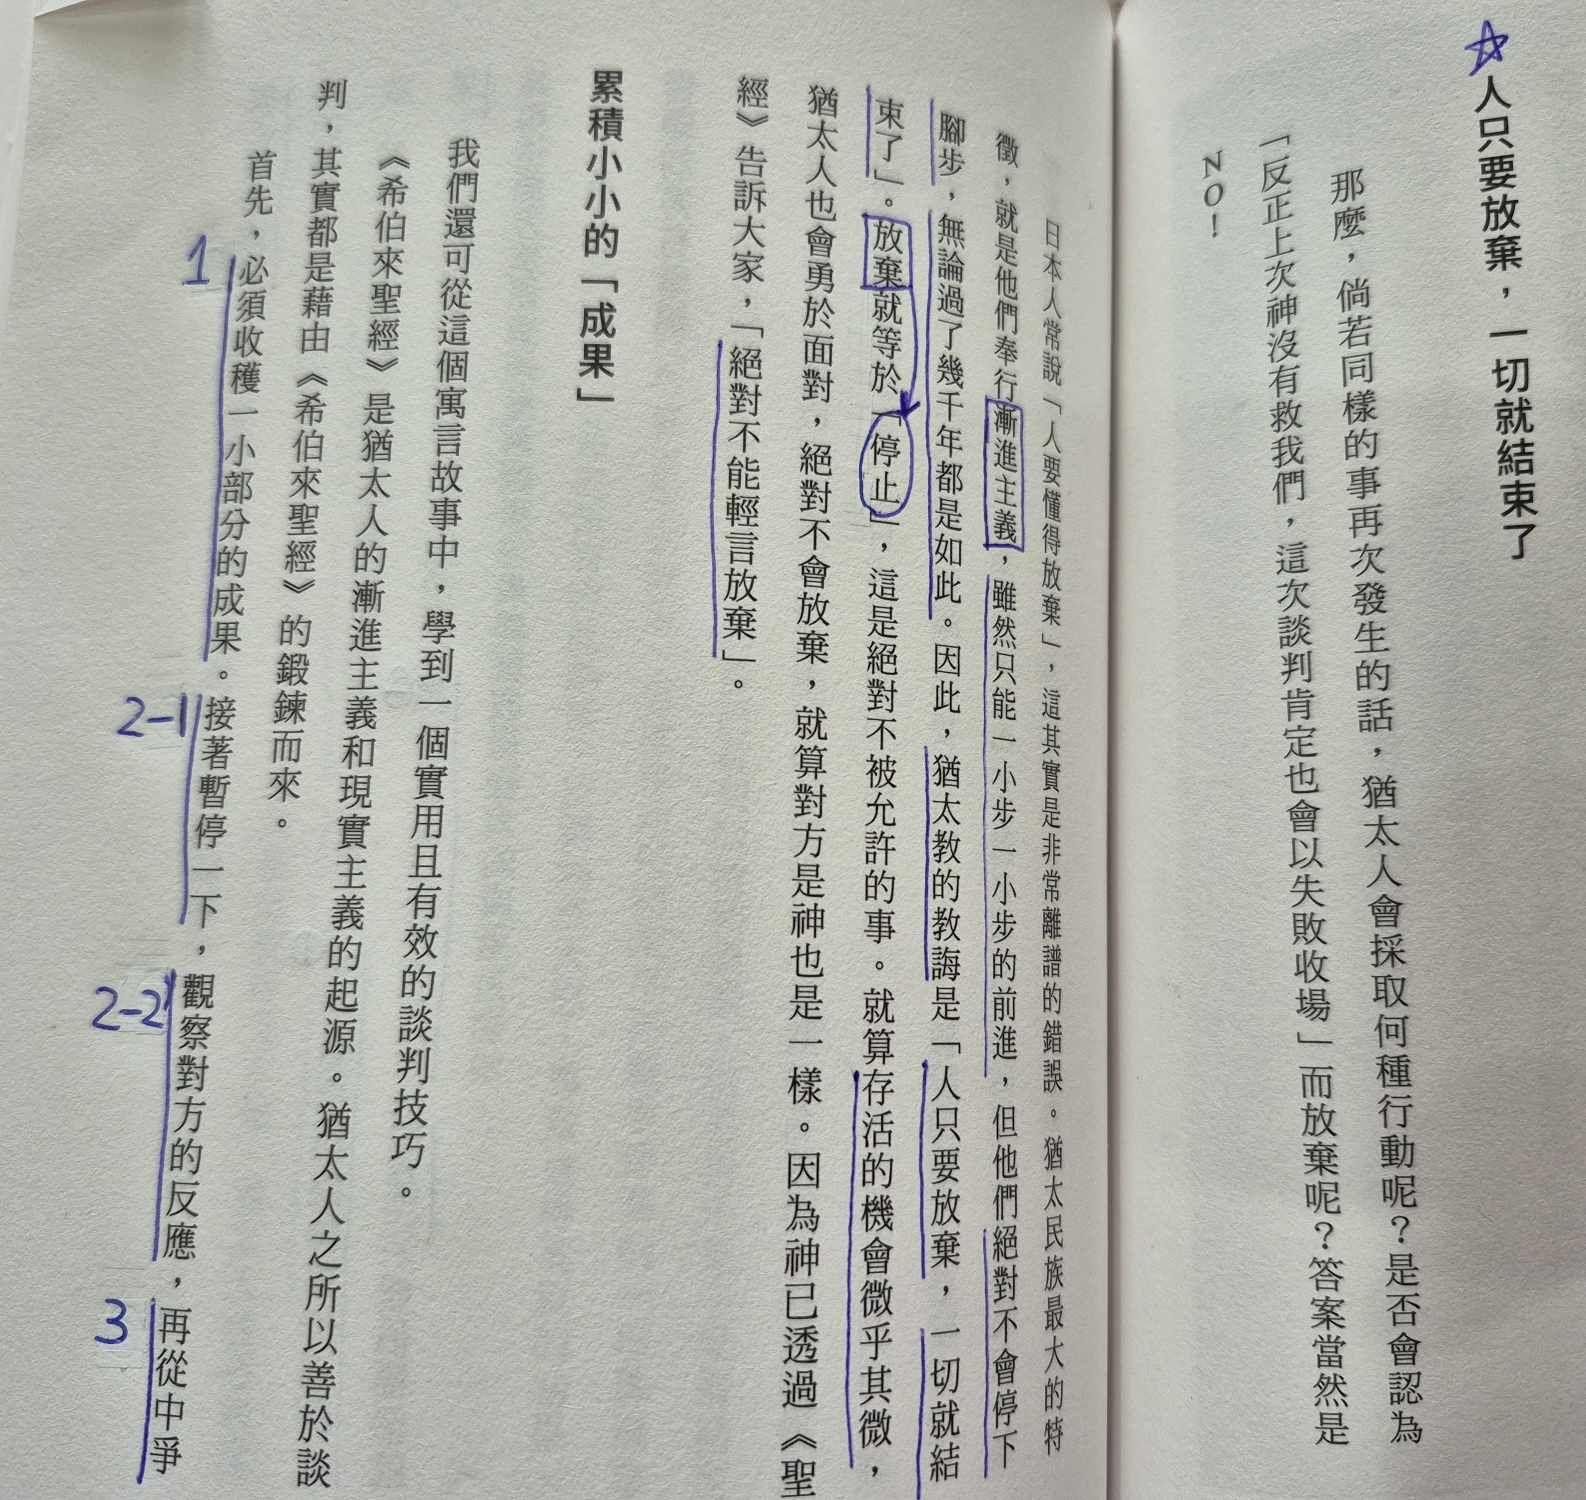 ☆人只要放棄，一切就結束了
那麼，倘若同樣的事再次發生的話，猶太人會採取何種行動呢？是否會認為
「反正上次神沒有救我們，這次談判肯定也會以失敗收場」而放棄呢？答案當然是
NO！
日本人常說「人要懂得放棄」，這其實是非常離譜的錯誤。猶太民族最大的特
徵，就是他們奉行漸進主義，雖然只能一小步一小步的前進，但他們絕對不會停下
腳步，無論過了幾千年都是如此。因此，猶太教的教誨是「人只要放棄，一切就結
束了」。放棄就等於「停止」，這是絕對不被允許的事。就算存活的機會微乎其微，
猶太人也會勇於面對，絕對不會放棄，就算對方是神也是一樣。因為神已透過《聖
經》告訴大家，「絕對不能輕言放棄」。
累積小小的「成果」
我們還可從這個寓言故事中，學到一個實用且有效的談判技巧。
《希伯來聖經》是猶太人的漸進主義和現實主義的起源。猶太人之所以善於談
判，其實都是藉由《希伯來聖經》的鍛鍊而來。
首先，必須收穫一小部分的成果。接著暫停一下，觀察對方的反應，再從中爭
1
2-1
2-2
3